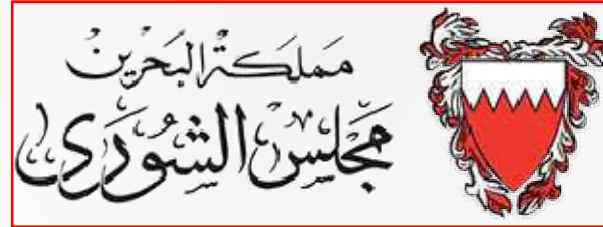 مملكة البحرين
مجلس الشورى